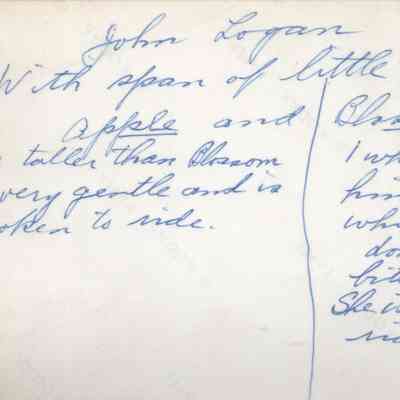 John Logan
With span of little
Apple and
taller than Blossom
very gentle and is
oken to ride.
Blos
I wh
him
whi
do
bit
She i
ri